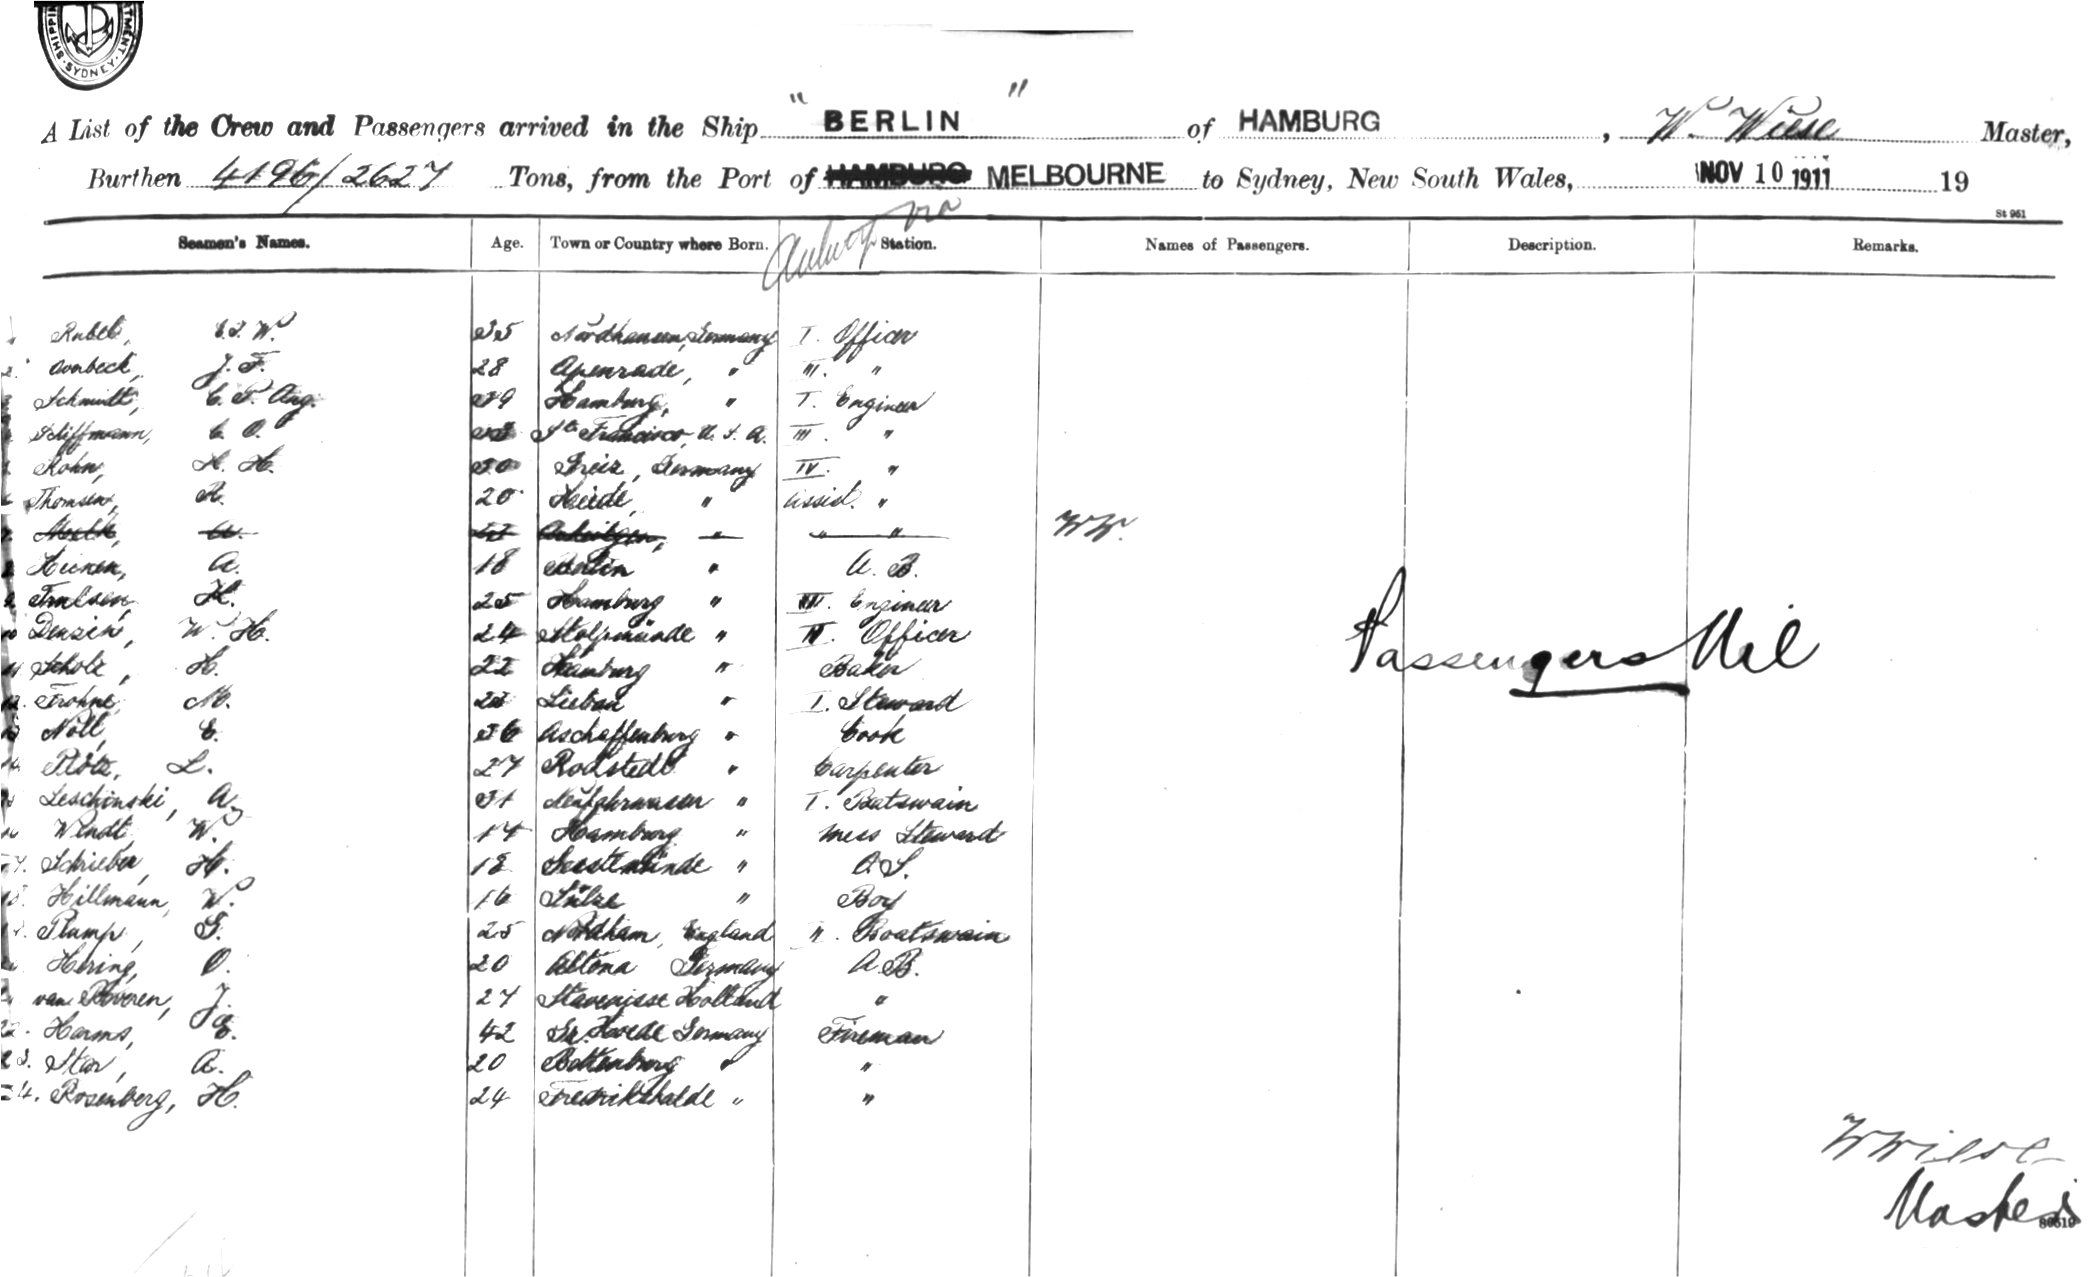 SHIPPING SYDNEY
A List of the Crew and Passengers arrived in the Ship " BERLIN " of HAMBURG, W. Wiese Master,
Burthen 4196/2627 Tons, from the Port of HAMBURG MELBOURNE to Sydney, New South Wales, NOV 10 1911 19
via
St 951
Seamen's Names. Age. Town or Country where Born. Station. Names of Passengers. Description. Remarks.
W. Nordhausen, Germany I. Officer
J. F. 28 Apenrade, " III. "
Schmidt, C. P. Aug. 39 Hamburg, " I. Engineer
Schiffmann, C. O. St Francisco, U. S. A. III. "
Kohn, H. H. Greiz, Germany IV. "
Thomsen, R. 20 Heide, " Assist. "
" " WW.
A. 18 Berlin " A. B.
H. 25 Hamburg " III. Engineer
Denzin, W. H. 24 Stolpmünde " II. Officer
11 Scholz, H. 22 Hamburg " Baker
12. Frohne, M. Liebau " I. Steward
Noll, E. 36 Aschaffenburg " Cook
14. Plötz, L. 27 Rodstedt " Carpenter
Leschinski, A. 31 Neufahrwasser " I. Batswain
Windt, W. 17 Hamburg " Mess Steward
17. Schrieber, H. 18 Geestemünde " O. S.
18. Hillmann, W. 16 Sülze " Boy
Plump, G. 25 Nordham, England II. Boatswain
Hering, O. 20 Altona Germany A. B.
van Boveren, J. 27 Stavenisse Holland "
22. Harms, E. 42 Germany Fireman
23. Star, A. 20 "  "
24. Rosenberg, H. 24 Fredrikshalde " "
Passengers Nil
W Wiese
Master
80519